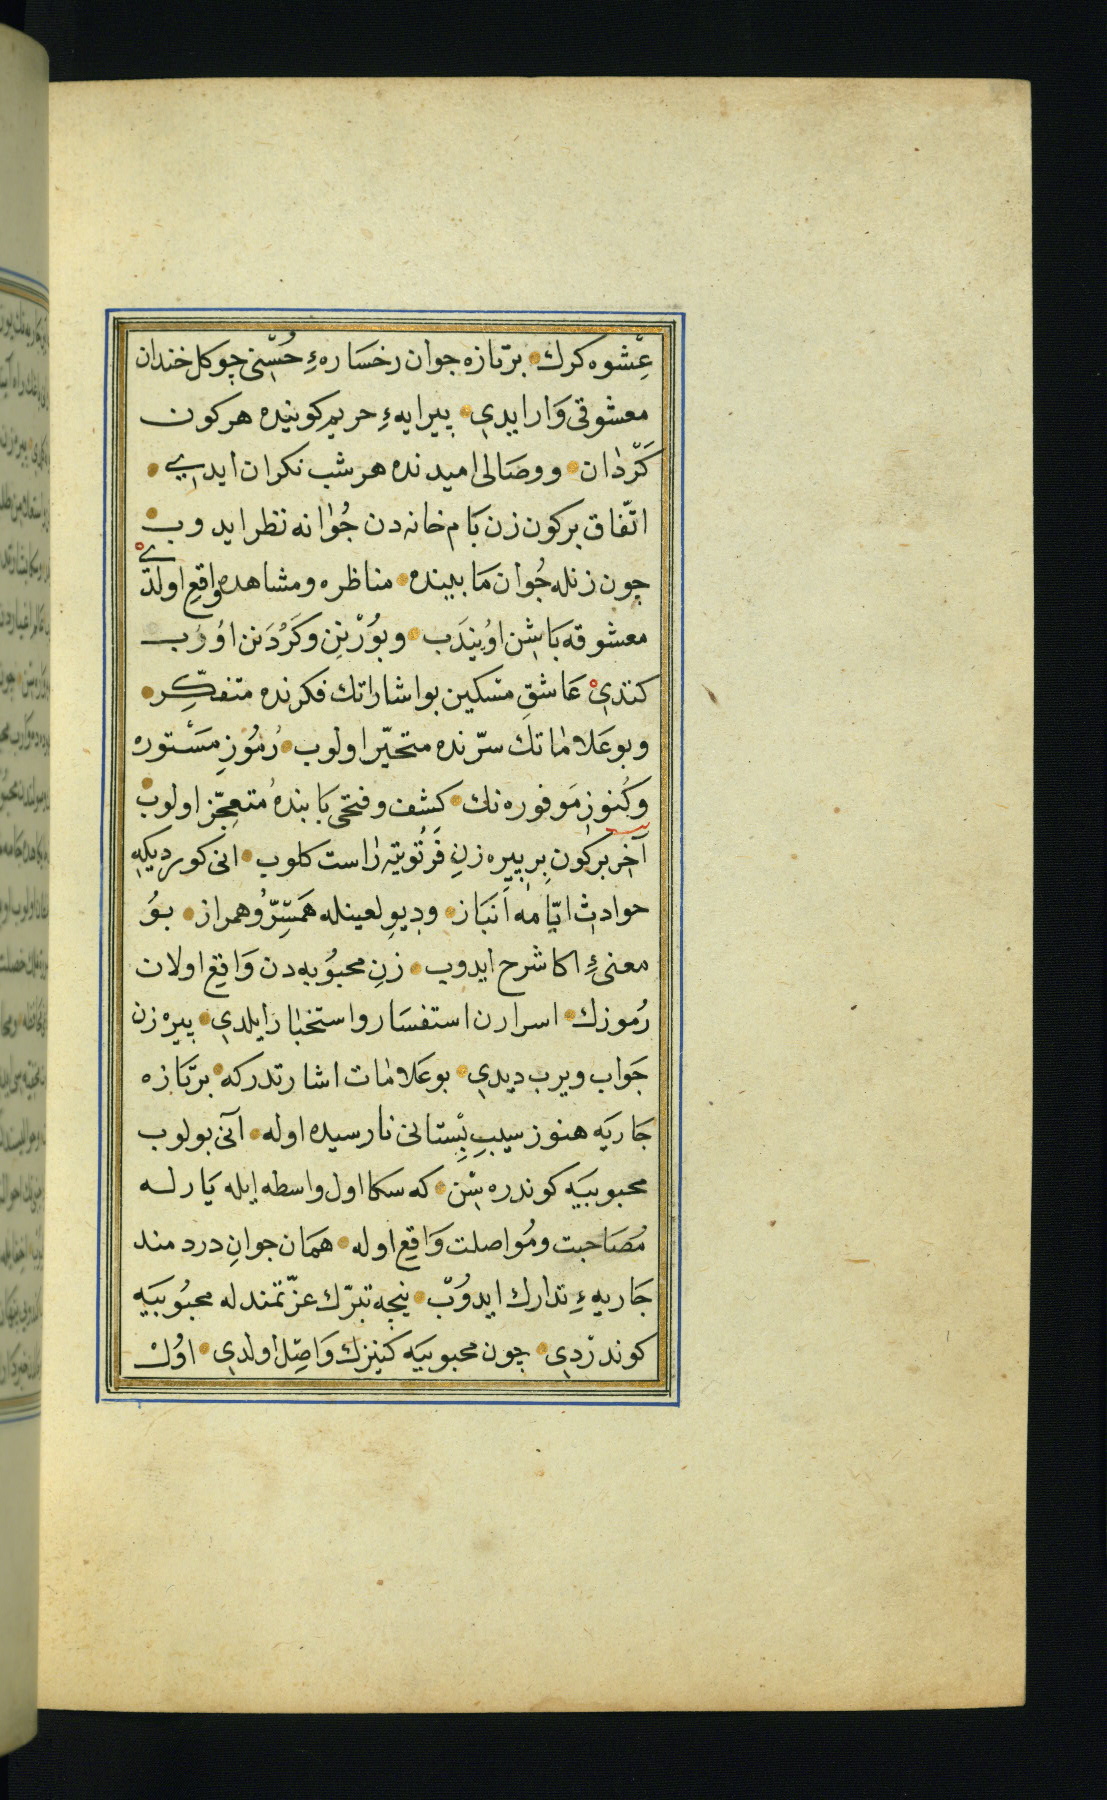 عِشوه كرك برّتازه جوان رخسَاره‌ءِ حُسْنى چو كل خندان
معشوقى وَار ايدي پيرايه‌ءِ حريم كوينده هر كون
كَرْدان ووصَالى اميدنده هر شب نكران ايديے
اتّفاق بر كون زن بَام خانه دن جُوٰانه نظر ايدوب
چون زنله جُوان مَا بيينده مناظره ومشاهده واقع اولدےٖ
معشوقه بَاشِن اوُيندَب وبوُرْنِن وكَرْدَنن اوُرُب
كتدىْ عَاشقِ مسْكين بو اشاراتك فكرنده متفكّر
وبو عَلاٰماتك سرّنده متحيّر اولوب رُمُوزِ مَسْتوره
وكُنوزِ مَوفوره نك كشف وفتحى بَابنده مُتعجِّز اولوب
آخر بر كون بِر پيره زنِ فَرْتُوتيه رٰاست كلوب انى كوردىكه
حوادثِ ايّامه اَنبَاز ودِيوِ لعينله هَمَسِّرّ وُهمراز بوُ
معنىءِ اكا شرح ايدوب زنِ محبوُبه دن وَاقع اولان
رُموزك اسرارن استفسَار واستخبٰار ايلدي پيره زن
جَواب ويرب ديدي بو عَلاٰمات اشارتدركه برّتازه
جَاريَه هنوز سيبِ بُسِتانى نارسيده اوله آنى بولوب
محبوبيَه كوندره سْن كه سكا اول واسطه ايله يَارلـه
مُصَاحبت ومُواصلت وَاقع اوله همَان جوانِ دردمند
جَاريه‌ءِ تدارك ايدوُبْ نيچه تبرّك عزّتمند له محبوُبيَه
كوندرْدي چون محبوبيَه كنيزك وَاصِل اولدي اوُلْ